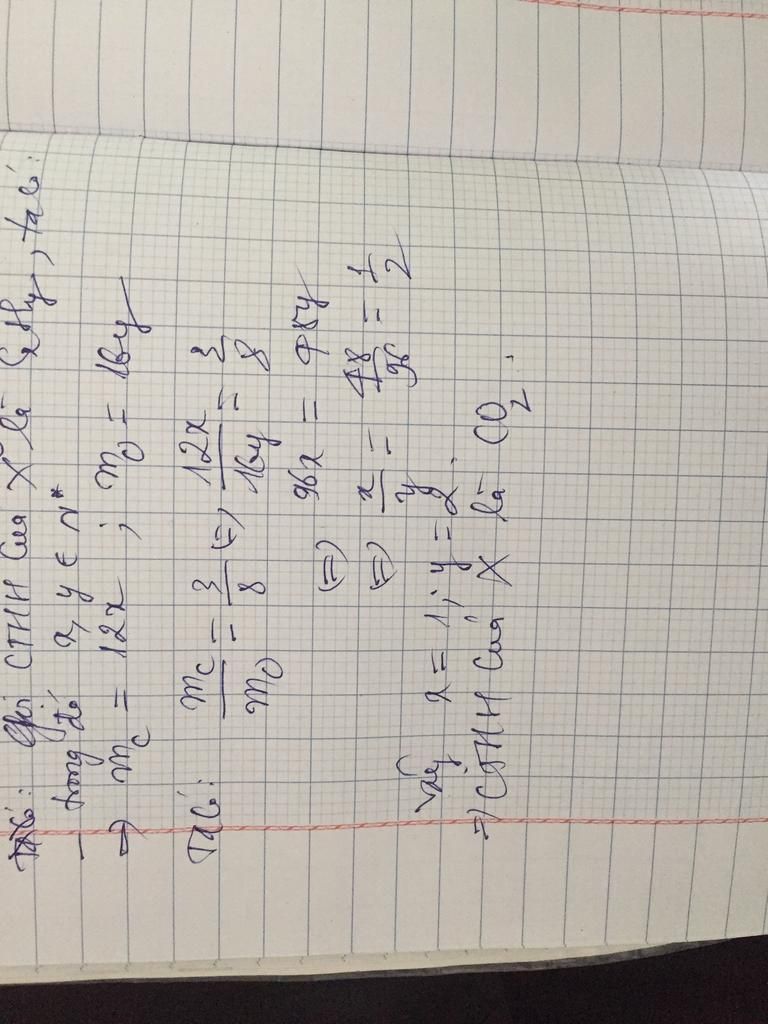 Ta có: Gọi CTHH của X là CxHy, ta có:
- trong đó x, y ∈ N*
=> mC = 12x ; mO = 16y
Ta có: mC/mO = 3/8 (=) 12x/16y = 3/8
(=) 96x = 48y
(=) x/y = 48/96 = 1/2
Vậy x = 1; y = 2.
=> CTHH của X là CO2.